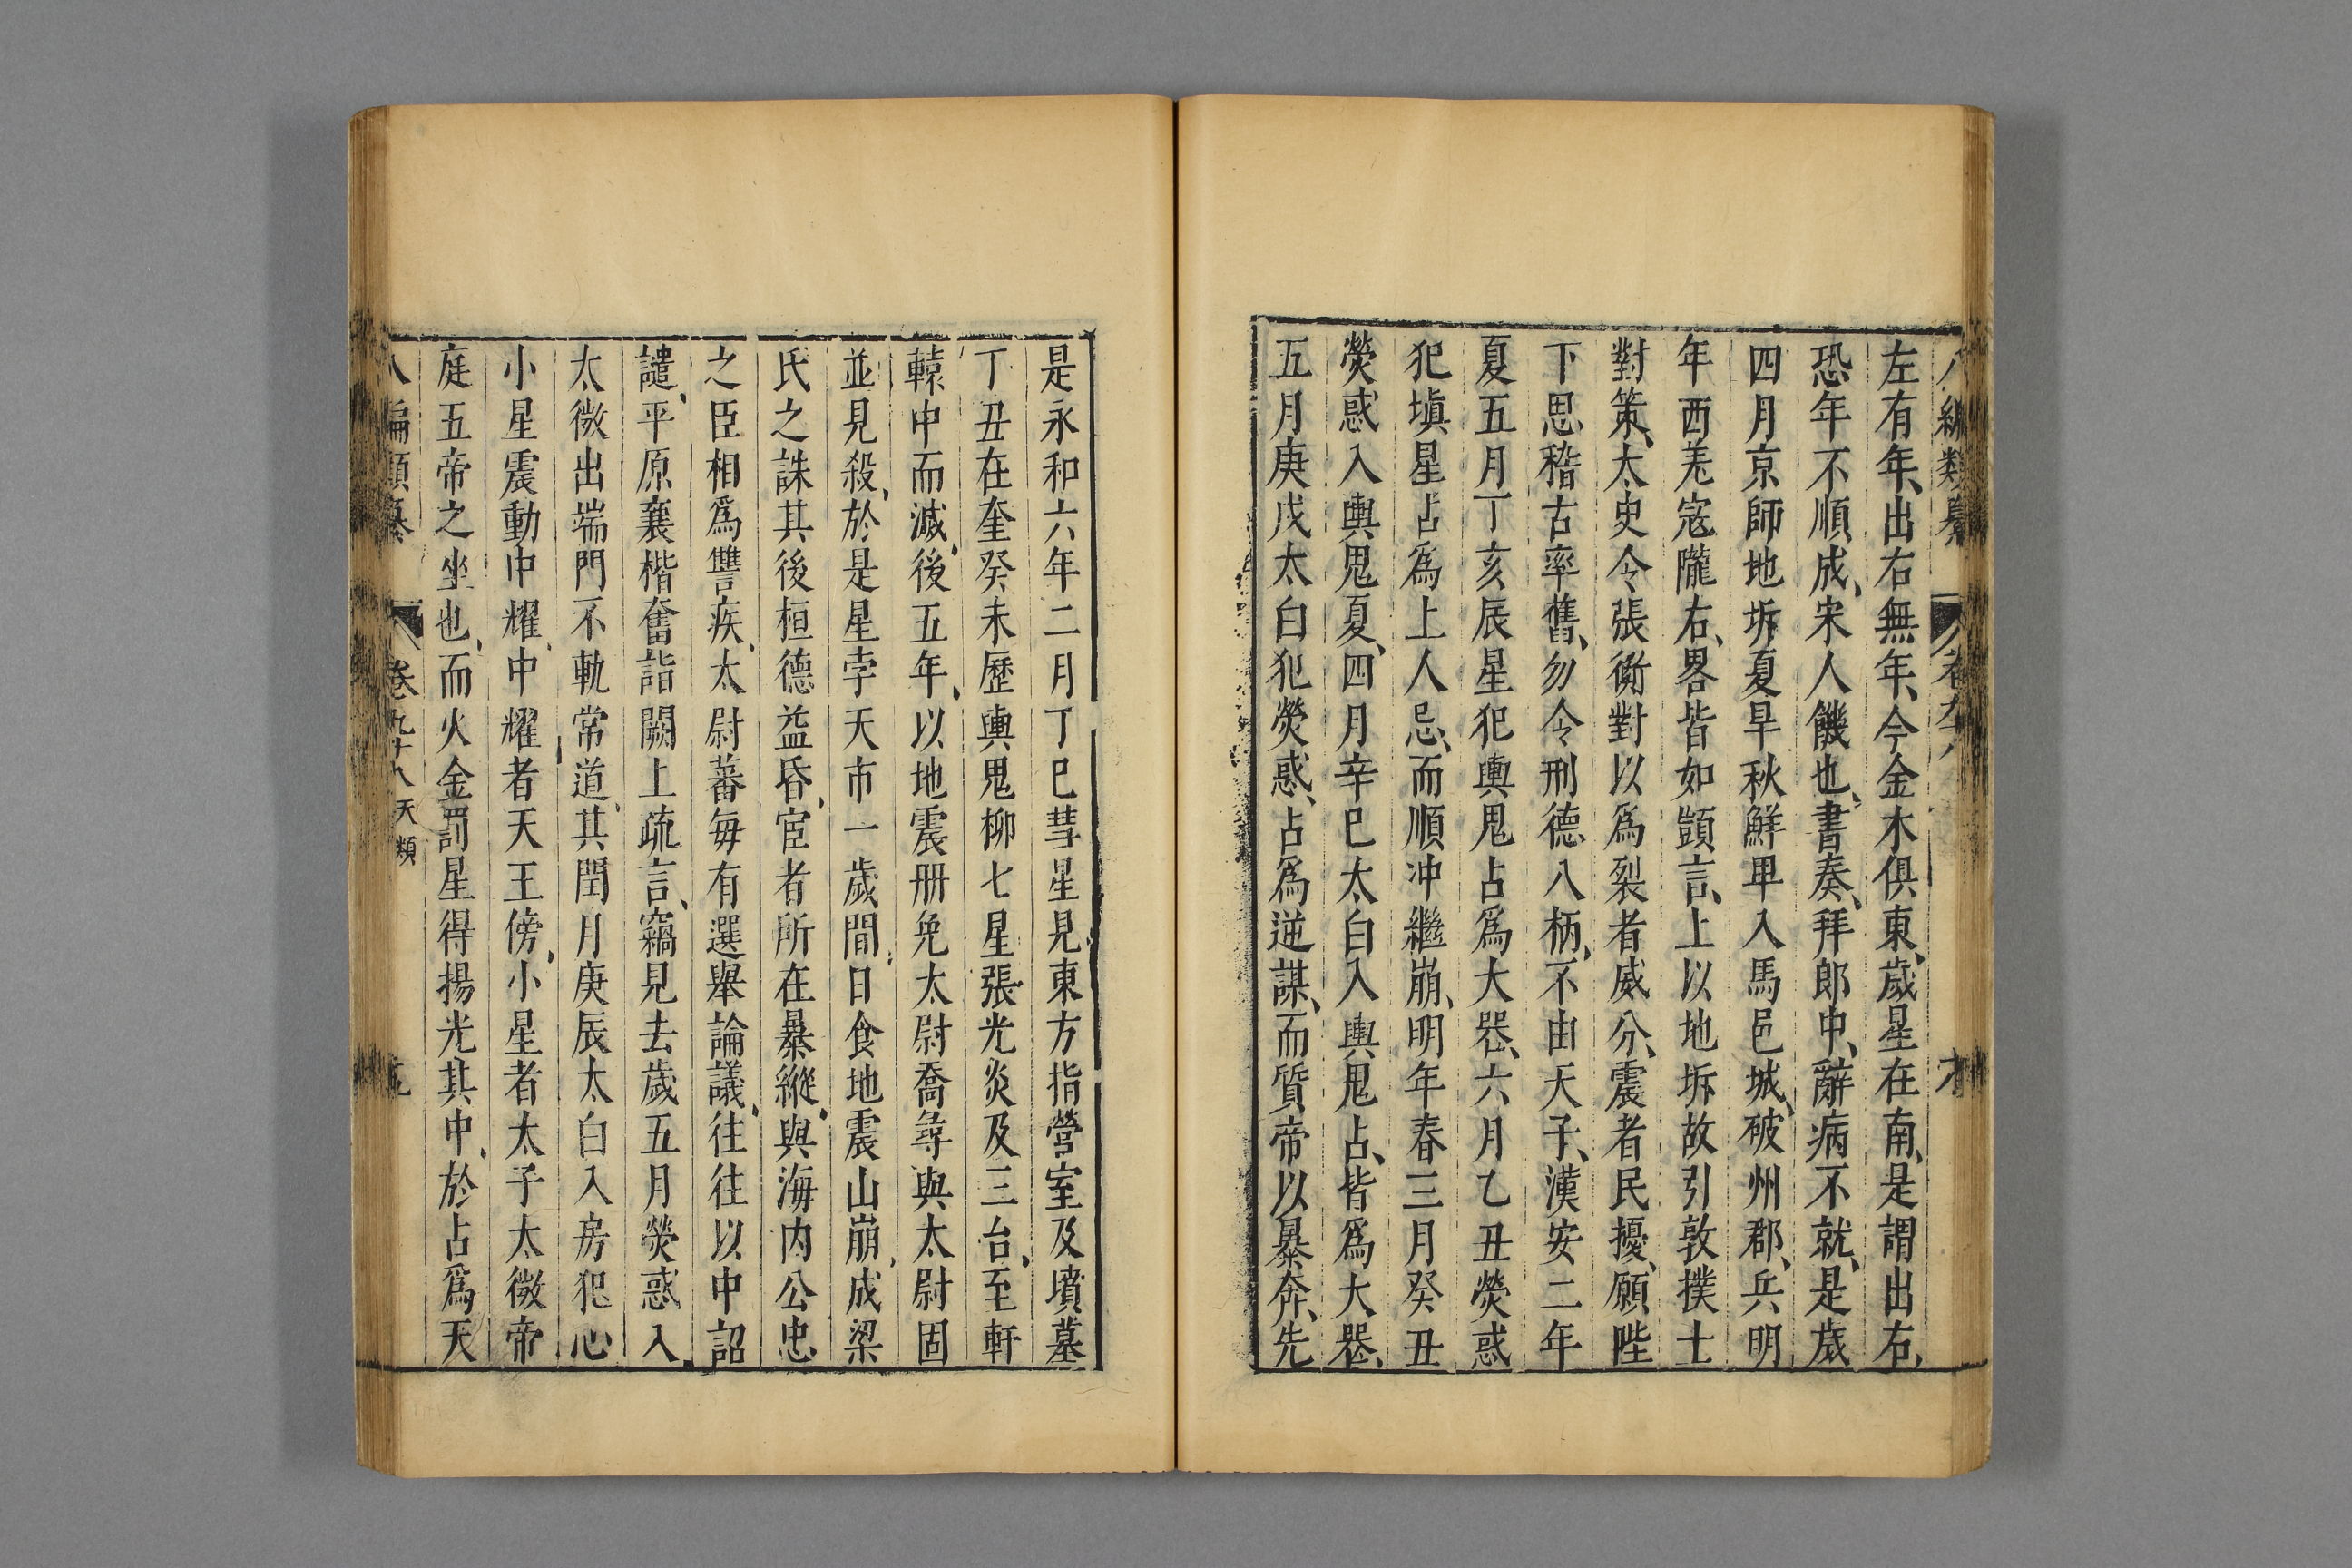 左有年、出右無年、今金木俱東、歲星在南、是謂出右、
恐年不順成、宋人饑也、書奏、拜郎中、辭病不就、是歲
四月京師地坼夏旱秋鮮卑入馬邑城、破州郡、兵明
年西羌宼隴右、畧皆如顗言、上以地坼故引敦撲士
對策、太史令張衡對以爲裂者威分、震者民擾、願陛
下思稽古率舊、勿令刑德八柄、不由天子、漢安二年
夏五月丁亥辰星犯輿鬼占爲大器、六月乙丑熒惑
犯塡星占爲上人忌、而順冲繼崩、明年春三月癸丑
熒惑入輿鬼夏、四月辛巳太白入輿鬼占、皆爲大器、
五月庚戌太白犯熒惑、占爲逆謀、而質帝以暴奔、先
是永和六年二月丁巳彗星見東方指營室及墳墓
丁丑在奎癸未歷輿鬼柳七星張光炎及三台、至軒
轅中而滅、後五年、以地震册免太尉喬尋與太尉固
並見殺、於是星孛天市一歲間、日食地震山崩、成梁
氏之誅其後桓德益昏、宦者所在暴縱、與海内公忠
之臣相爲讐疾、太尉蕃每有選舉論議、往往以中詔
譴、平原襄楷奮詣闕上疏言、竊見去歲五月熒惑入
太微出端門不軌常道、其閏月庚辰太白入房犯心
小星震動中耀、中耀者天王傍、小星者太子太微帝
庭五帝之坐也、而火金罰星得揚光其中、於占爲天
八編類纂
卷九十八
天類